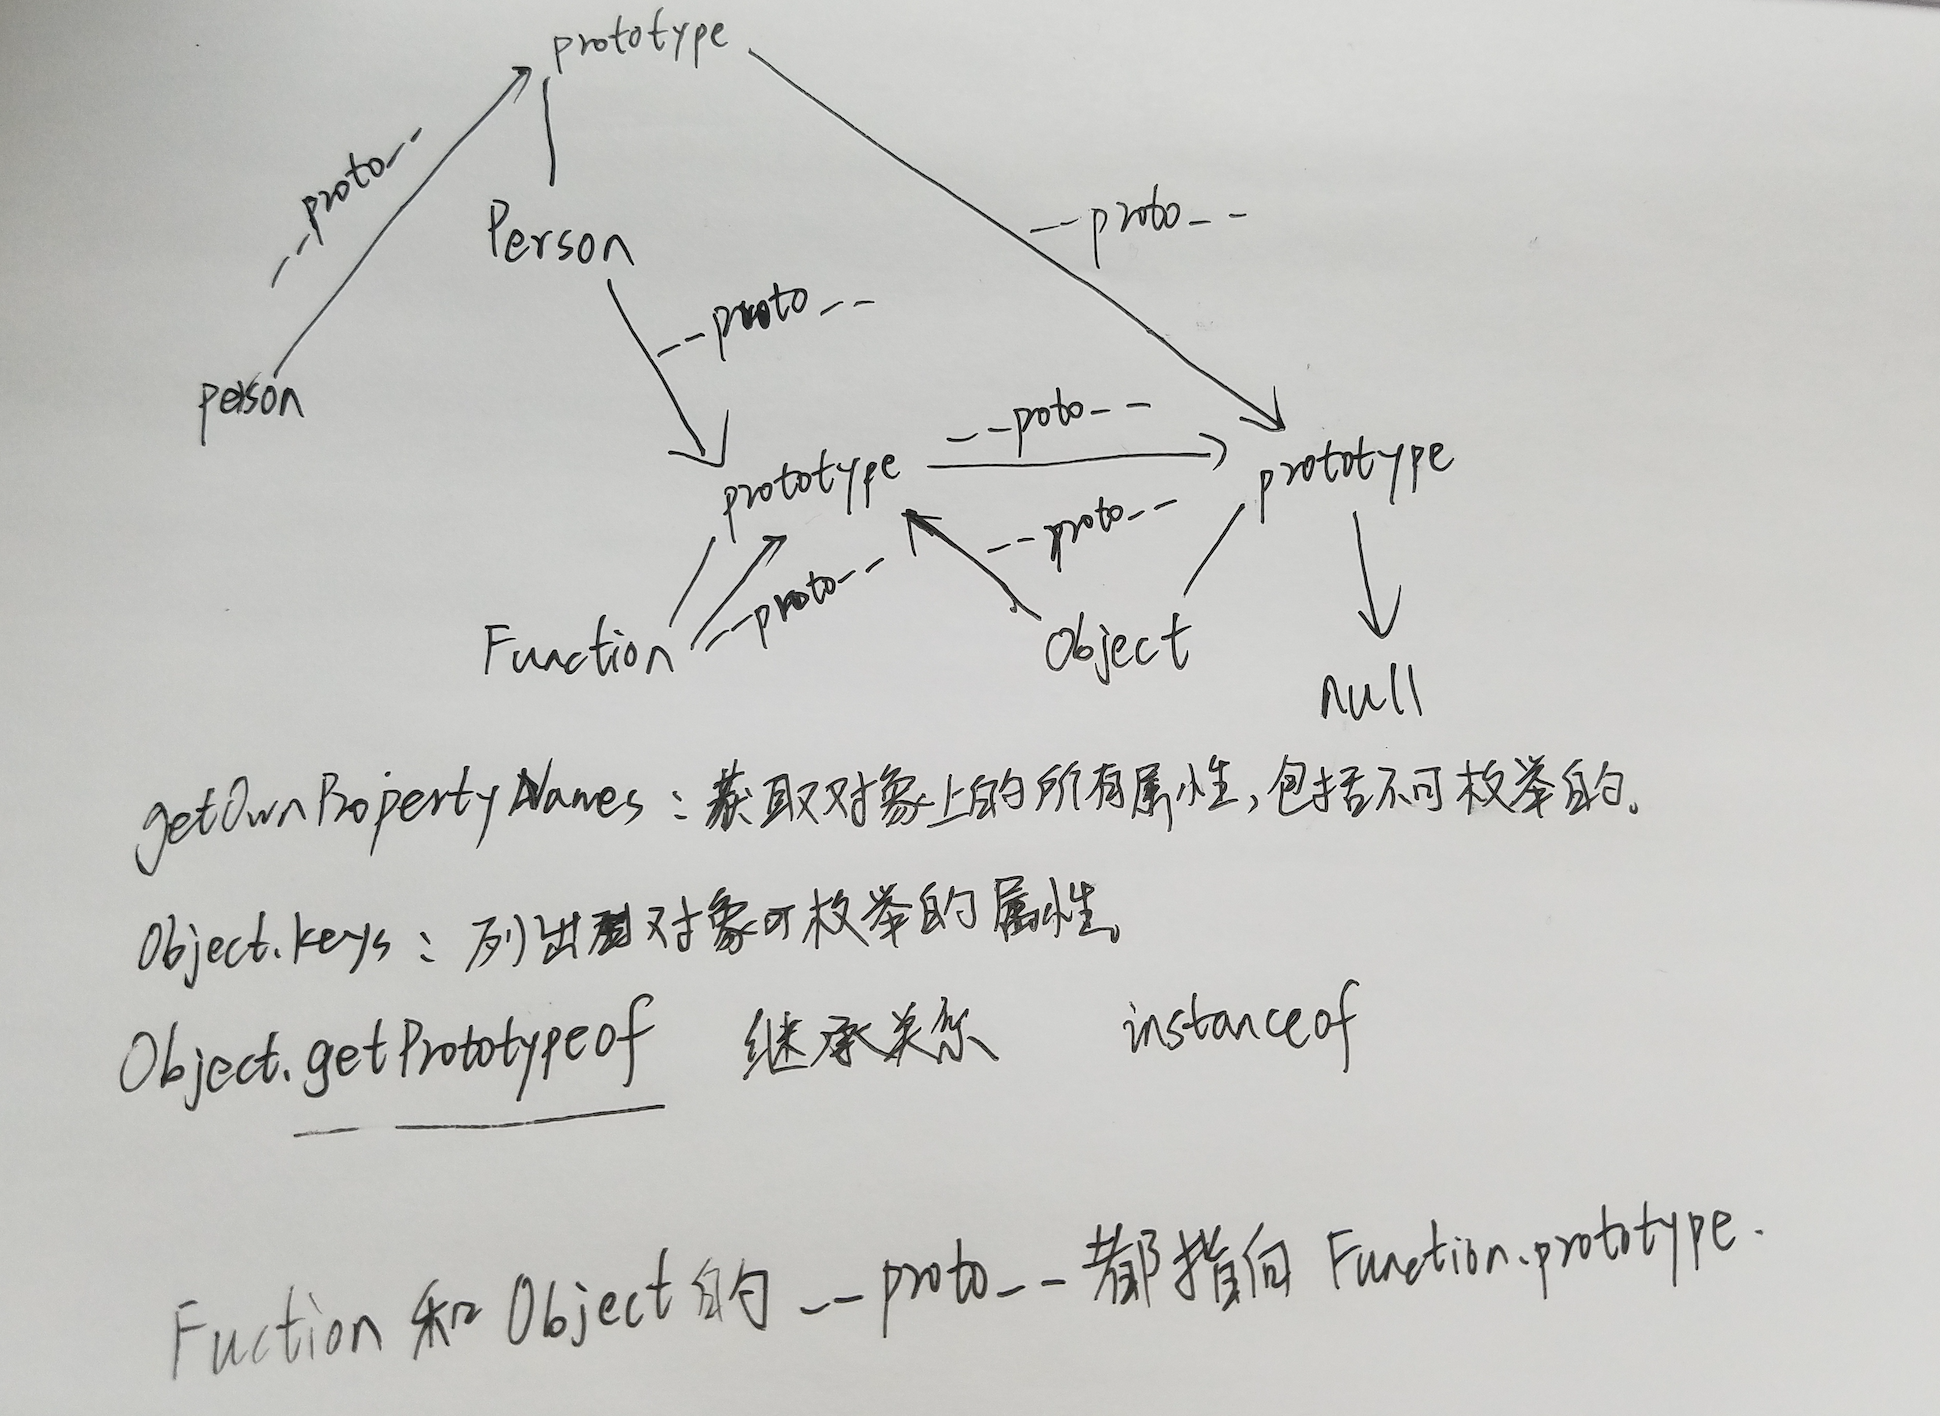 prototype
__proto__
__proto__
Person
__proto__
person
__poto__
prototype
prototype
__proto__
__proto__
Function
Object
null
getOwnPropertyNames：获取对象上的所有属性，包括不可枚举的。
Object.keys：列出对象可枚举的属性。
Object.getPrototypeof 继承关系 instanceof
Fuction 和 Object 的 __proto__ 都指向 Function.prototype.